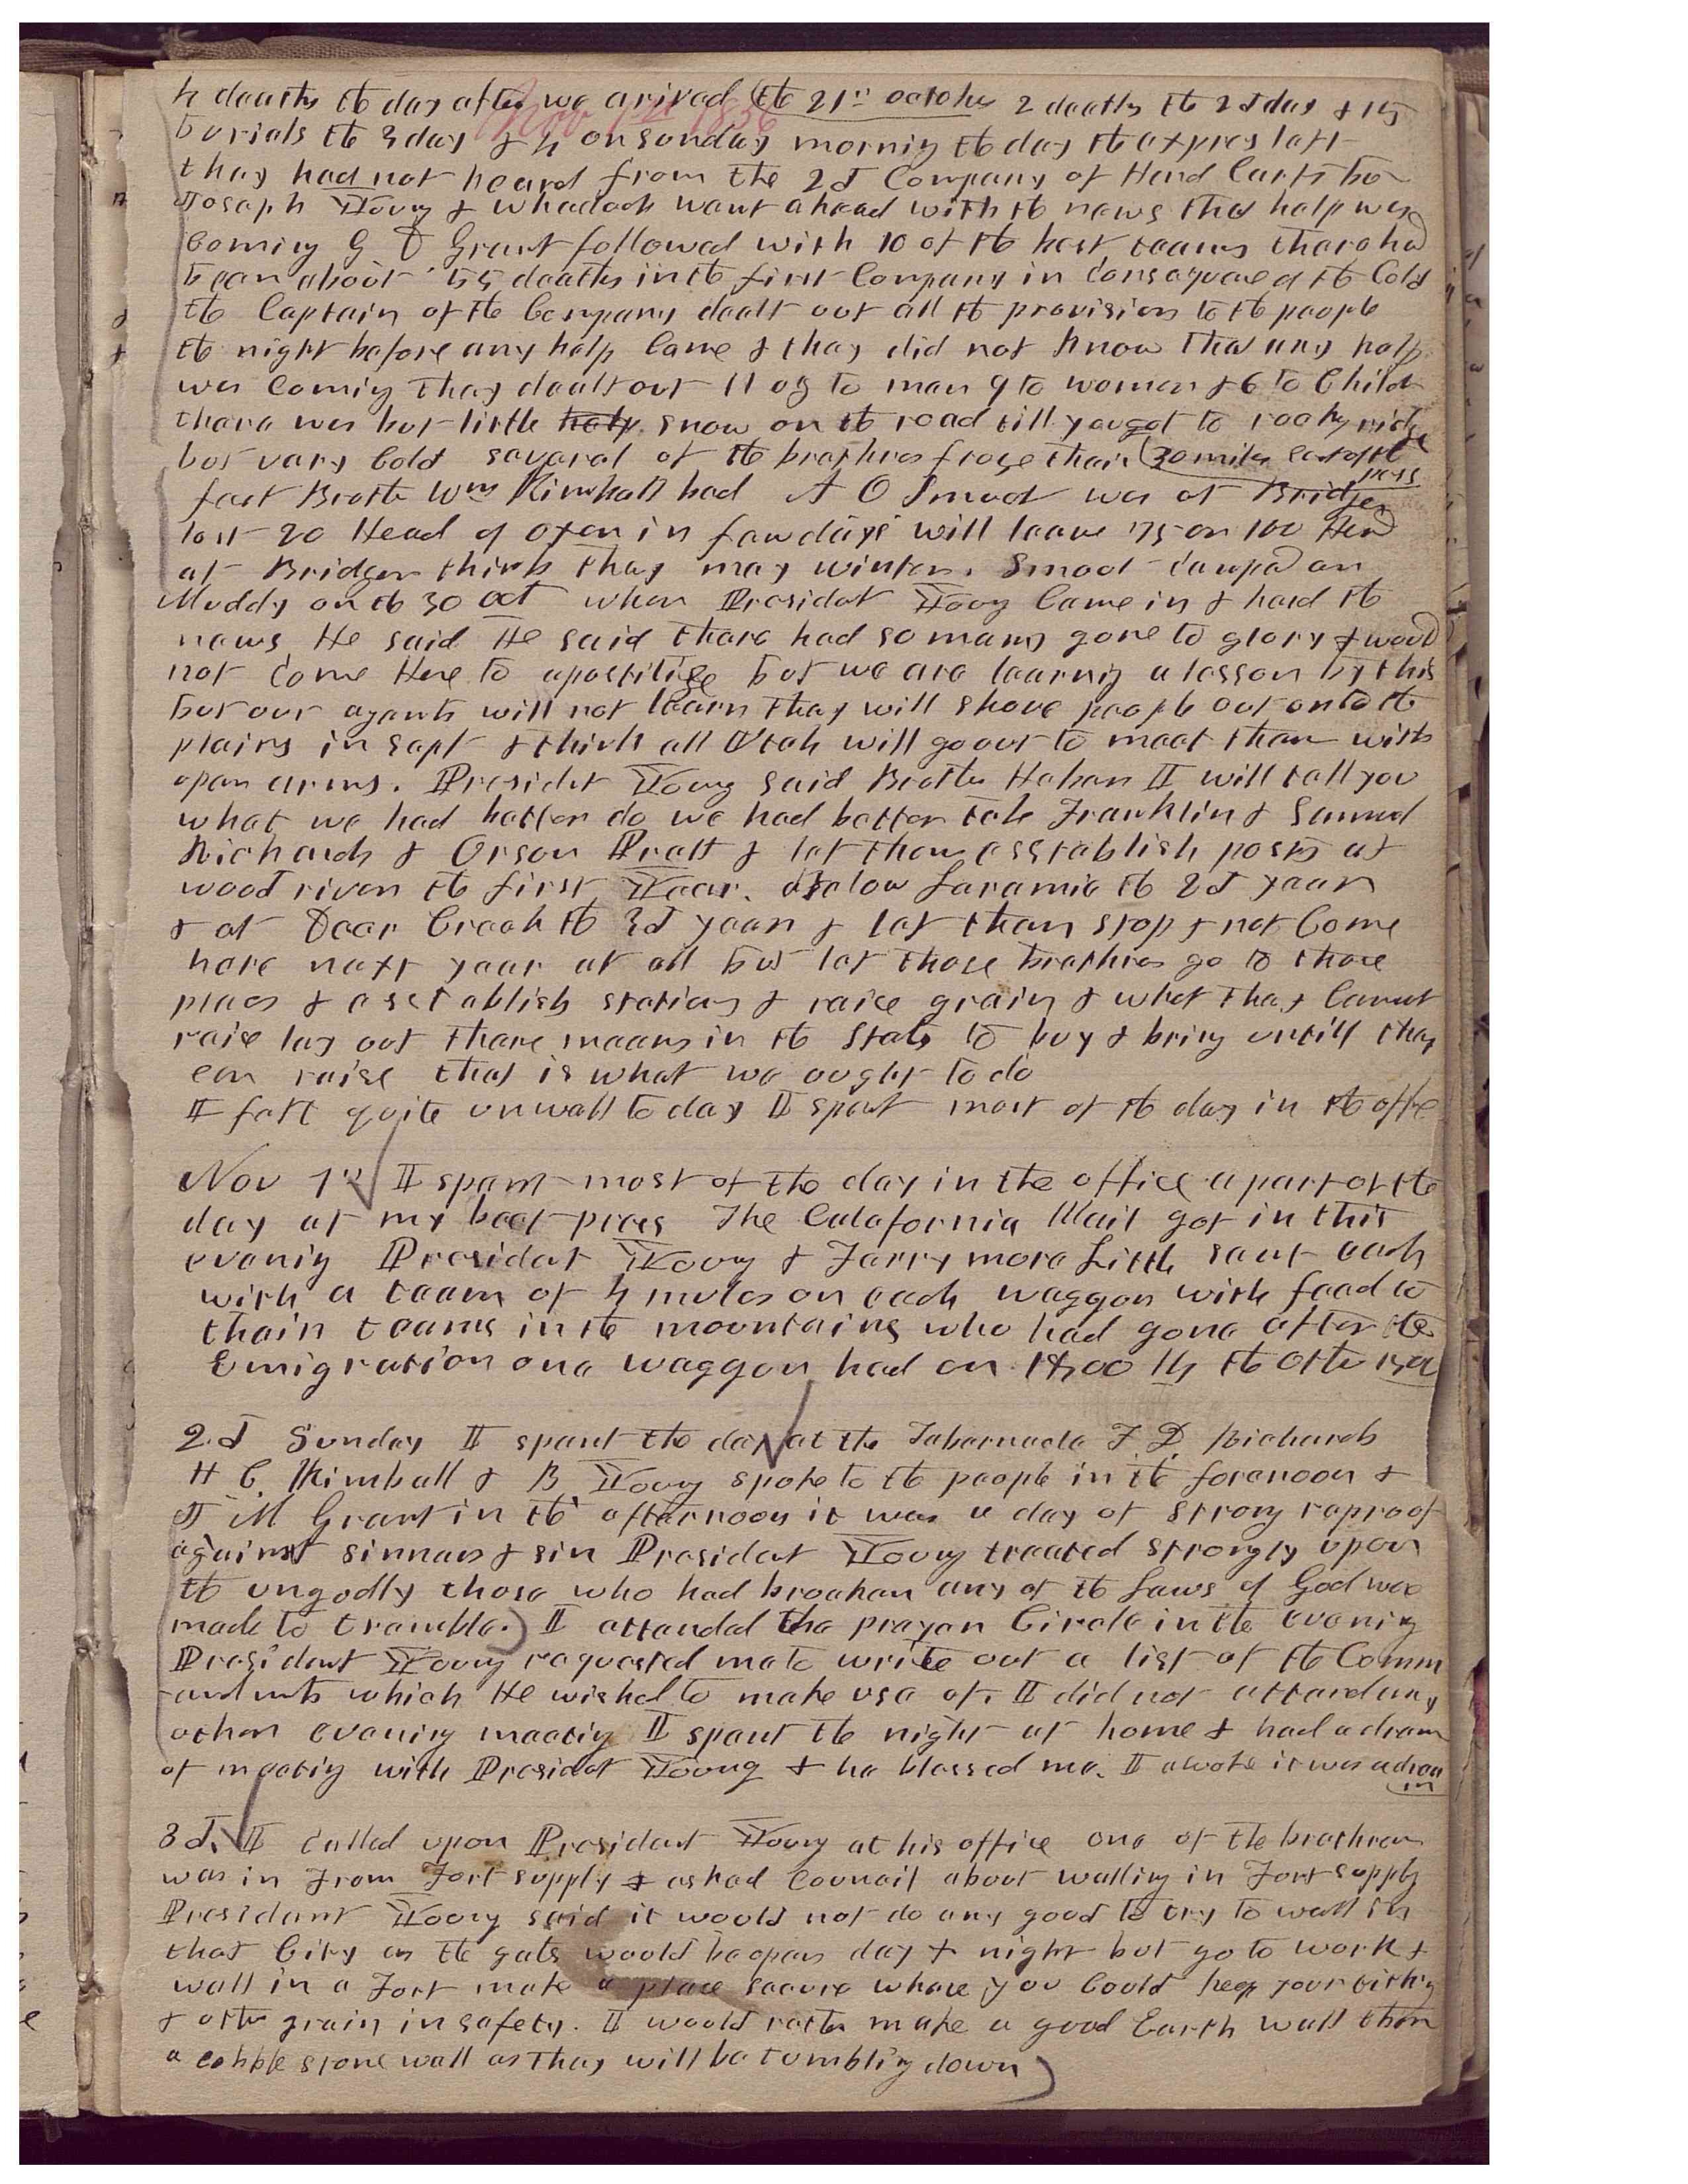 4 deaths the day after we arived (the 21st october 2 deaths the 2d day & 15
Nov 1st 1856
burials the 3 day & 4 on Sunday morning the day the expres left
they had not heard from the 2d Company of Hand Carts but
Joseph Young & Whadock want ahead with the news that help was
Coming G D Grant followed with 10 of the best teams there had
been about 55 deaths in the first Company in Consequence of the Cold
the Captain of the Company dealt out all the provision to the people
the night before any help Came & they did not know that any help
was Coming They dealt out 11 oz to man 9 to women & 6 to Child
there was but little help snow on the road till you got to rocky ridge
but vary Cold several of the brethren froze their (30 miles east of the pass
feet Brother Wm Kimball had A O Smoot was at Bridger
lost 20 Head of oxen in few days will leave 75 or 100 Head
at Bridger think they may winter. Smoot Camped on
Muddy on the 30 Oct when President Young Came in & hard the
news He said He said there had so many gone to glory & would
not Come Here to apostitise but we are learnig a lesson by this
but our agents will not learn They will shove people out onto the
plains in Sept & think all Utah will go out to meet them with
open arms. President Young said Brother Heber II will tell you
what we had better do we had better take Franklin & Samuel
Richards & Orson Pratt & let them esstablish posts at
wood river the first Year. Below Laramie the 2d year
& at Deer Creek the 3d year & let them stop & not Come
here next year at all but let those brethren go to those
places & esstablish stations & raise grain & what they Cannot
raise lay out there means in the States to buy & bring untill they
can raise that is what we ought to do
II felt quite unwell to day II spent most of the day in the office
Nov 1st II spent most of the day in the office a part of the
day at my beet pres The Calafornia Mail got in this
evenig President Young & Ferrymore Little sent each
with a team of 4 mules on each waggon with feed to
their teams in the mountains who had gone after the
Emigration one waggon had on 1800 lb the other 1500
2d Sunday II spent the day at the Tabernacle F. D. Richards
H C. Kimball & B Young spoke to the people in the forenoon &
J M Grant in the afternoon it was a day of strong reproof
against sinners & sin President Young treated strongly upon
the ungodly those who had broaken any of the Laws of God was
made to tremble.) II attended the prayer Circle in the evening
President Young requested me to write out a list of the Comm
-andments which He wished to make use of. II did not attend any
other evening meetig II spent the night at home & had a dream
of meetig with President Young & he blessed me. II awoke it was a dream
3d. II Called upon President Young at his office one of the brethren
was in From Fort supply & asked Council about walling in Fort supply
President Young said it would not do any good to try to wall in
that City as the gats would be open day & night but go to work &
wall in a Fort make a place secure where you Could keep your
& other grain in safety. II would rather make a good Earth wall than
a cobble stone wall as they will be tumbling down)